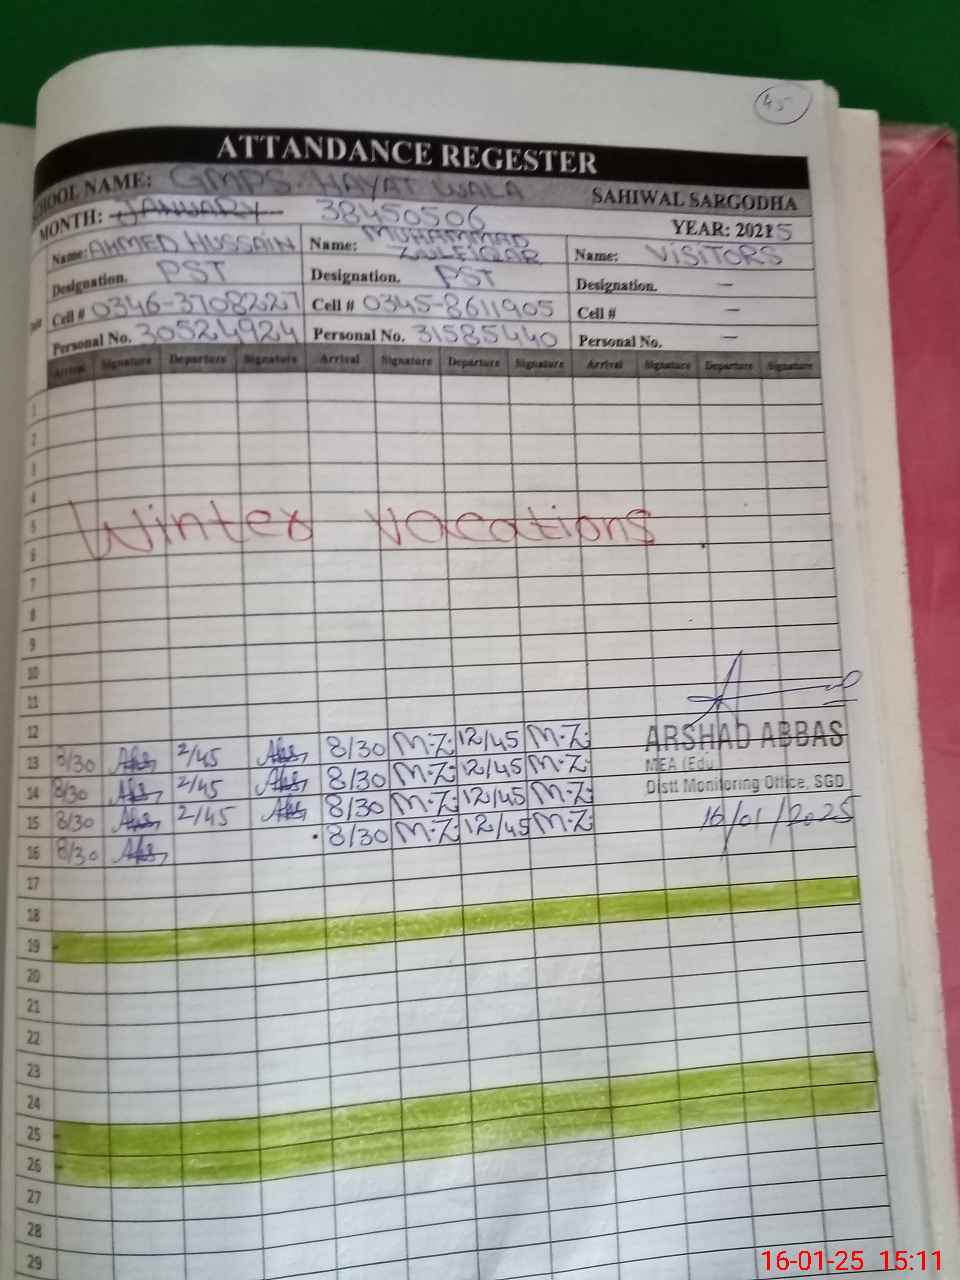 45
ATTANDANCE REGESTER
SCHOOL NAME: GMPS. HAYAT WALA SAHIWAL SARGODHA
MONTH: JANUARY 38450506 YEAR: 2025
Name: AHMED HUSSAIN Name: MUHAMMAD ZULFIQAR Name: VISITORS
Designation. PST Designation. PST Designation. —
Cell # 0346-3708227 Cell # 0345-8611905 Cell # —
Personal No. 30524924 Personal No. 31585440 Personal No. —
Arrival Signature Departure Signature Arrival Signature Departure Signature Arrival Signature Departure Signature
1
2
3
4
5 Winter vacations
6
7
8
9
10
11
12
13 8/30 2/45 8/30 M.Z: 12/45 M.Z:
14 8/30 2/45 8/30 M.Z: 12/45 M.Z:
15 8/30 2/45 8/30 M.Z: 12/45 M.Z:
16 8/30 8/30 M.Z: 12/45 M.Z:
ARSHAD ABBAS
MEA (Edu)
Distt Monitoring Office, SGD
16/01/2025
17
18
19
20
21
22
23
24
25
26
27
28
29
16-01-25 15:11